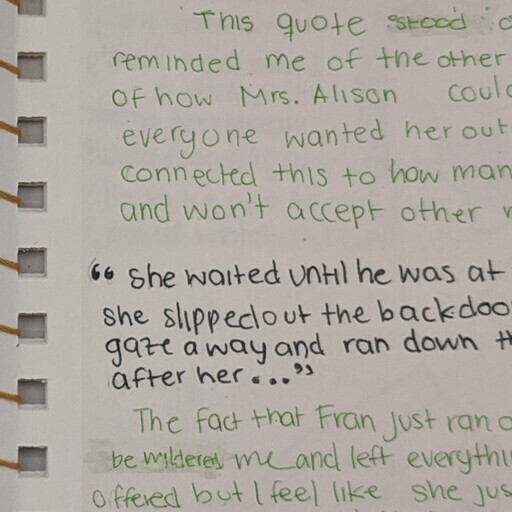 This quote stood o
reminded me of the other
of how Mrs. Alison coul
everyone wanted her out
connected this to how man
and won't accept other
"she waited until he was at
she slipped out the backdoo
gaze away and ran down th
after her ..."
The fact that Fran just ran
bewildered me and left everythi
offered but I feel like she jus